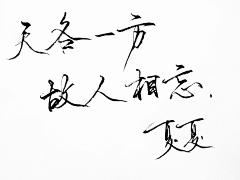 天各一方
故人相忘.
夏夏